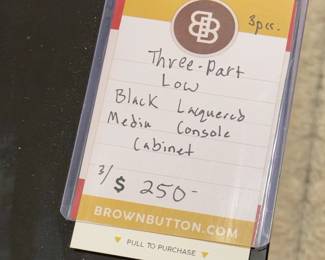 3pcs.
Three-Part
Low
Black Lacquered
Media Console
Cabinet
3/ $ 250-
BROWNBUTTON.COM
PULL TO PURCHASE